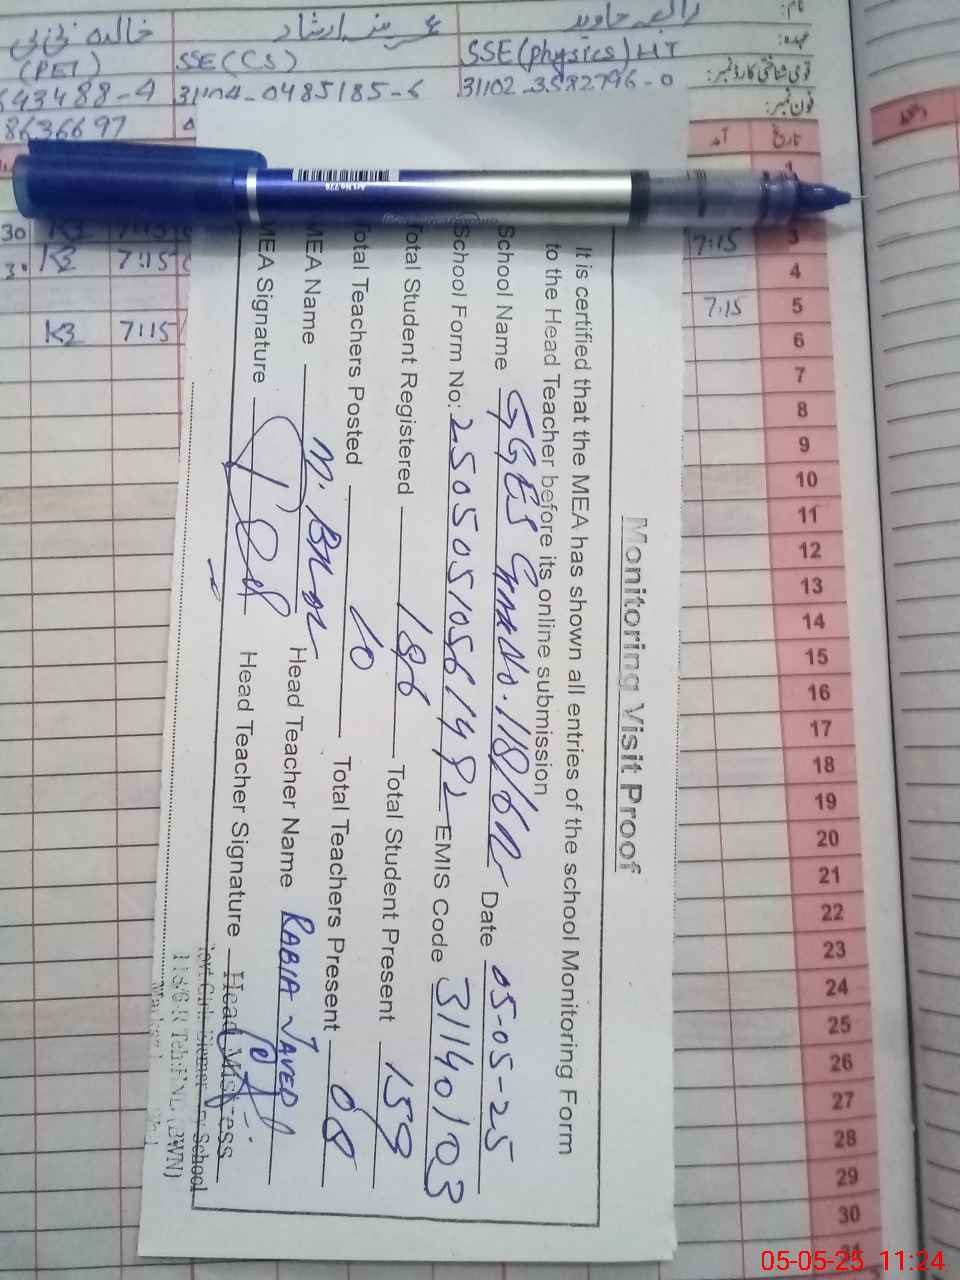 رابعہ جاوید
عرینہ ارشاد
خالدہ بی بی
نام:
عہدہ:
SSE(physics)HT
SSE(CS)
(PET)
قومی شناختی کارڈ نمبر:
31102-3582796-0
31104-0485185-6
643488-4
فون نمبر:
8636697
تاریخ
آمد
Monitoring Visit Proof
It is certified that the MEA has shown all entries of the school Monitoring Form
to the Head Teacher before its online submission
School Name GGES Chak No.118/6R Date 05-05-25
School Form No: 25050510561492 EMIS Code 31140103
Total Student Registered 186 Total Student Present 159
Total Teachers Posted 10 Total Teachers Present 08
MEA Name M. Head Teacher Name RABIA JAVED
MEA Signature Head Teacher Signature
Head Mistress
Govt. Girls Elementary School
118/6-R Teh: HND (BWN)
30 K3 7:15
3 7:15
K3 7:15
4
5 7:15
K3 7:15
6
7
8
9
10
11
12
13
14
15
16
17
18
19
20
21
22
23
24
25
26
27
28
29
30
31
05-05-25 11:24